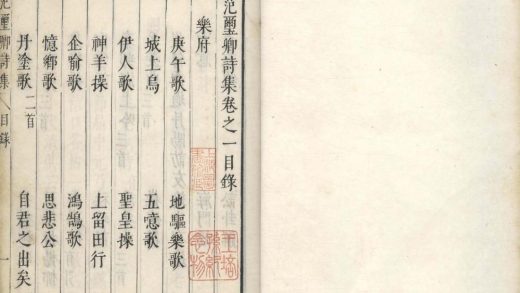 范璽卿詩集卷之一目錄
樂府
庚午歌 地驅樂歌
城上烏 五噫歌
伊人歌 聖皇操
神羊操 上留田行
企喻歌 鴻鵠歌
憶鄉歌 思悲公
丹塗歌二首 自君之出矣
范璽卿詩集 目錄 一
上海圖書館藏
王培孫紀念物